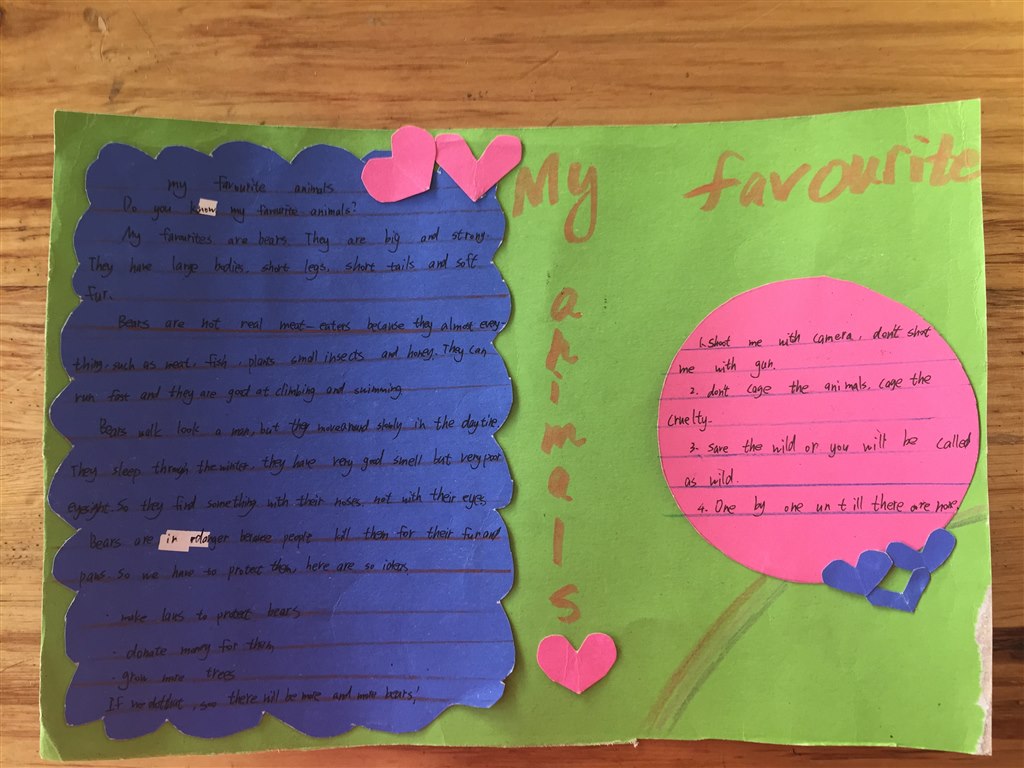 My favourite
animals
my favourite animals
Do you know my favourite animals?
My favourites are bears. They are big and strong.
They have large bodies, short legs, short tails and soft
fur.
Bears are not real meat-eaters because they almost every-
thing, such as meat, fish, plants small insects and honey. They can
run fast and they are good at climbing and swimming.
Bears walk look a man, but they movearound slowly in the daytime.
They sleep through the winter. they have very good smell but very poor
eyesight. So they find something with their noses, not with their eyes.
Bears are in danger because people kill them for their fur and
paws. So we have to protect them, here are so ideas.
· make laws to protect bears
· donate money for them
· grow more trees
If we, there will be more and more bears!
1. shoot me with camera, don't shot
me with gun.
2. don't cage the animals, cage the
cruelty.
3. save the wild or you will be called
as wild.
4. One by one un till there are none